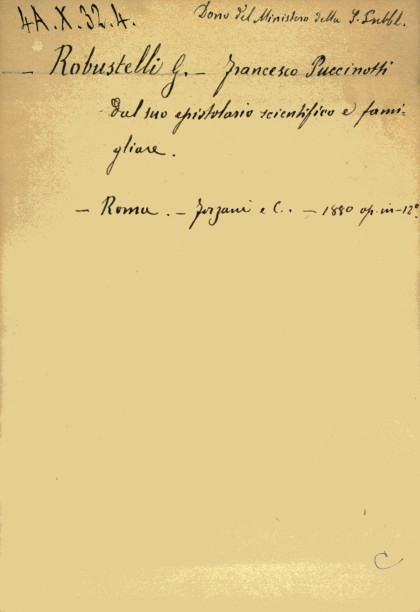 4A.X.32.4.
Dono del Ministero della P. Pubbl.
— Robustelli G. — Francesco Puccinotti
dal suo epistolario scientifico e fami-
gliare.
— Roma. — Forzani e C. — 1880 op. in-12°.
C